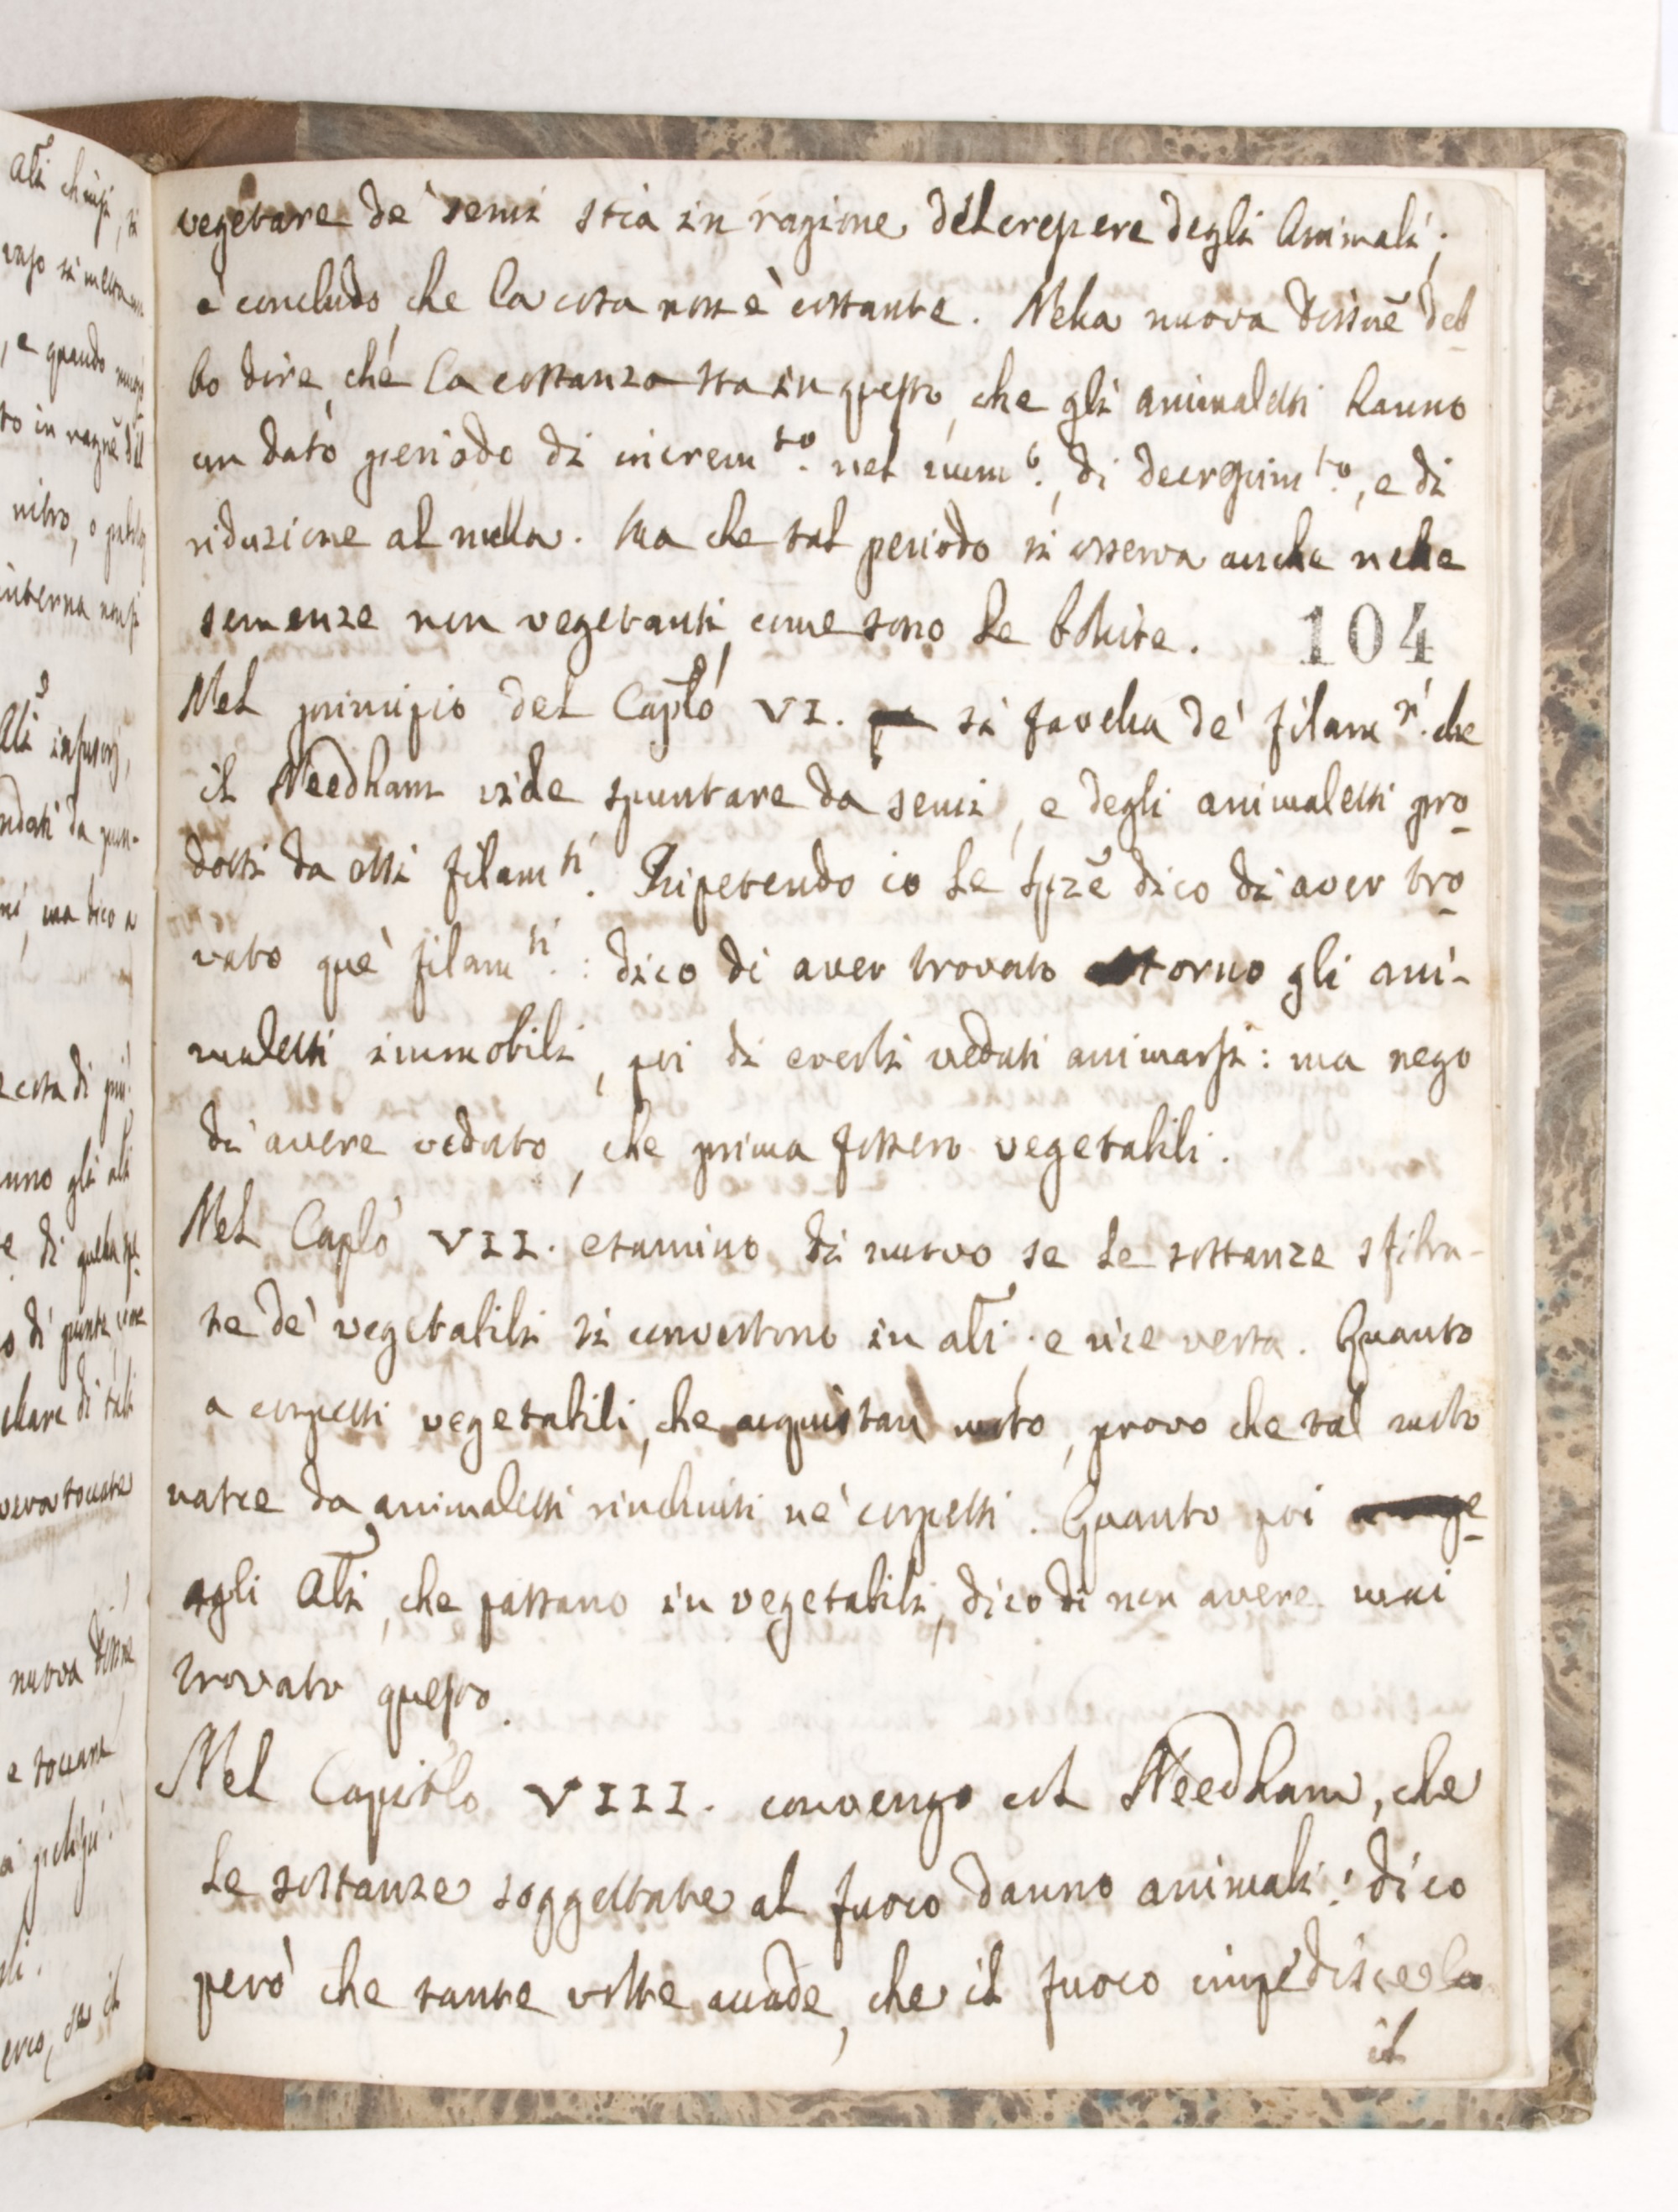 vegetare de' semi stia in ragione del crepere degli Animali;
e concludo, che la cosa non è costante. Nella nuova dissnē deb-
bo dire, che la costanza sta in questo, che gli animaletti hanno
un dato periodo di increm.to nel num.o, di decresim.to, e di
riduzione al nulla. Ma che tal periodo si osserva anche nelle
semenze non vegetanti, come sono le bollite. 104
Nel principio del Caplo VI. si favella de' filam.ti che
il Needham vide spuntare da semi, e degli animaletti pro-
dotti da essi filam.ti. Ripetendo io le spzē dico di aver tro-
vato que' filam.ti: dico di aver trovato attorno gli ani-
maletti immobili, poi di everli veduti animarsi: ma nego
di avere veduto, che prima fossero vegetabili.
Nel Caplo VII. esamino di nuovo se le sostanze sfila-
te de' vegetabili si convertono in ali, e vice versa. Quanto
a corpetti vegetabili, che acquistan moto, provo che tal moto
nasce da animaletti rinchiusi ne' corpetti. Quanto poi
agli Ali, che passano in vegetabili, dico di non avere mai
trovato questo.
Nel Capitolo VIII. convengo col Needham, che
le sostanze soggettate al fuoco danno animali: dico
però che tante volte accade, che il fuoco impedisce la
il